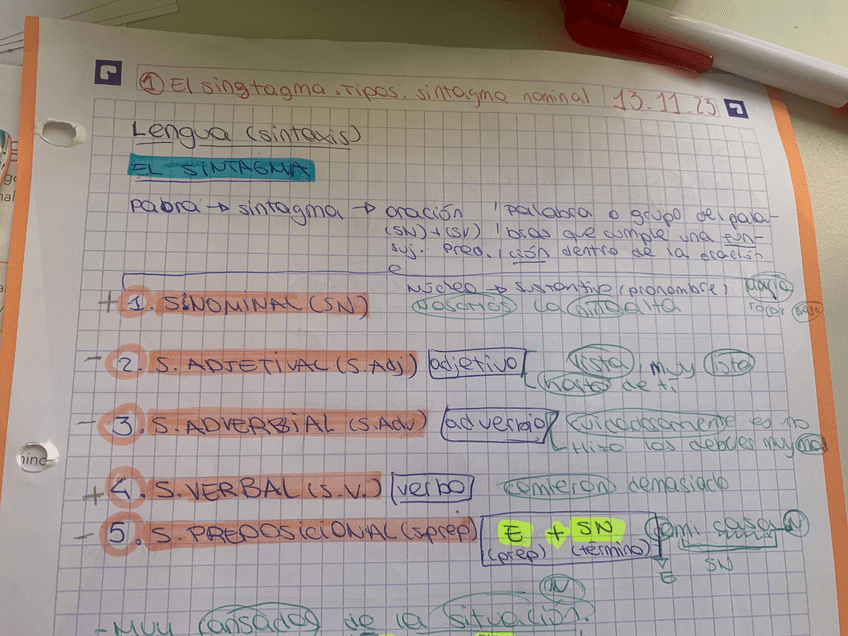 ① El singtagma. Tipos. sintagma nominal 13.11.23
Lengua (sintaxis)
EL SINTAGMA
Pabra → sintagma → oración 'Palabra o grupo de pala-
(SN)+(SV) bras que cumple una fun-
suj. Pred. ción dentro de la oración
Núcleo → sustantivo (pronombre) María
+ 1. S.NOMINAL (SN) nosotros La niña alta
- 2. S. ADJETIVAL (S.Adj) adjetivo lista, muy lista
harto de ti
- 3. S. ADVERBIAL (S.Adv) adverbio cuidadosamente
Hizo los deberes muy
+ 4. S. VERBAL (S.V.) verbo comieron demasiado
- 5. S. PREPOSICIONAL (sprep) E + SN mi casa N
(prep) (término) E SN
N
- Muy cansados de la situación.